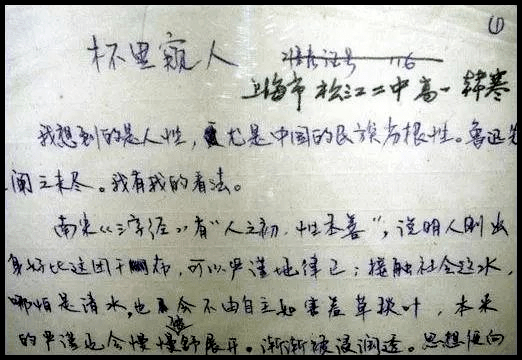 ①
杯里窥人 准考证号 116
上海市松江二中高一 韩寒
我想到的是人性,尤是中国的民族劣根性。鲁迅先
阐之未尽。我有我的看法。
南宋《三字经》有“人之初,性本善”,说明人刚出
身好比这团干布,可以严谨地律己;接触社会这水,
哪怕是清水,也会不由自主如害羞草叶,本来
的严谨也会慢慢地舒展开,渐渐被浸润透。思想便向